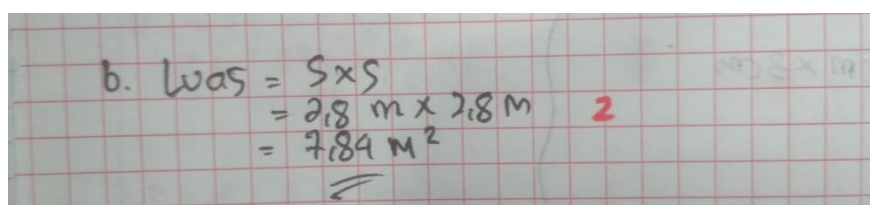 b. Luas = S x S
= 2,8 m x 2,8 m 2
= 7,84 m²